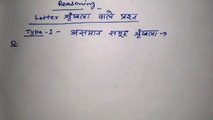 Reasoning
Letter शृंखला वाले प्रश्न
Type-I- असमान समूह शृंखला →
Q: